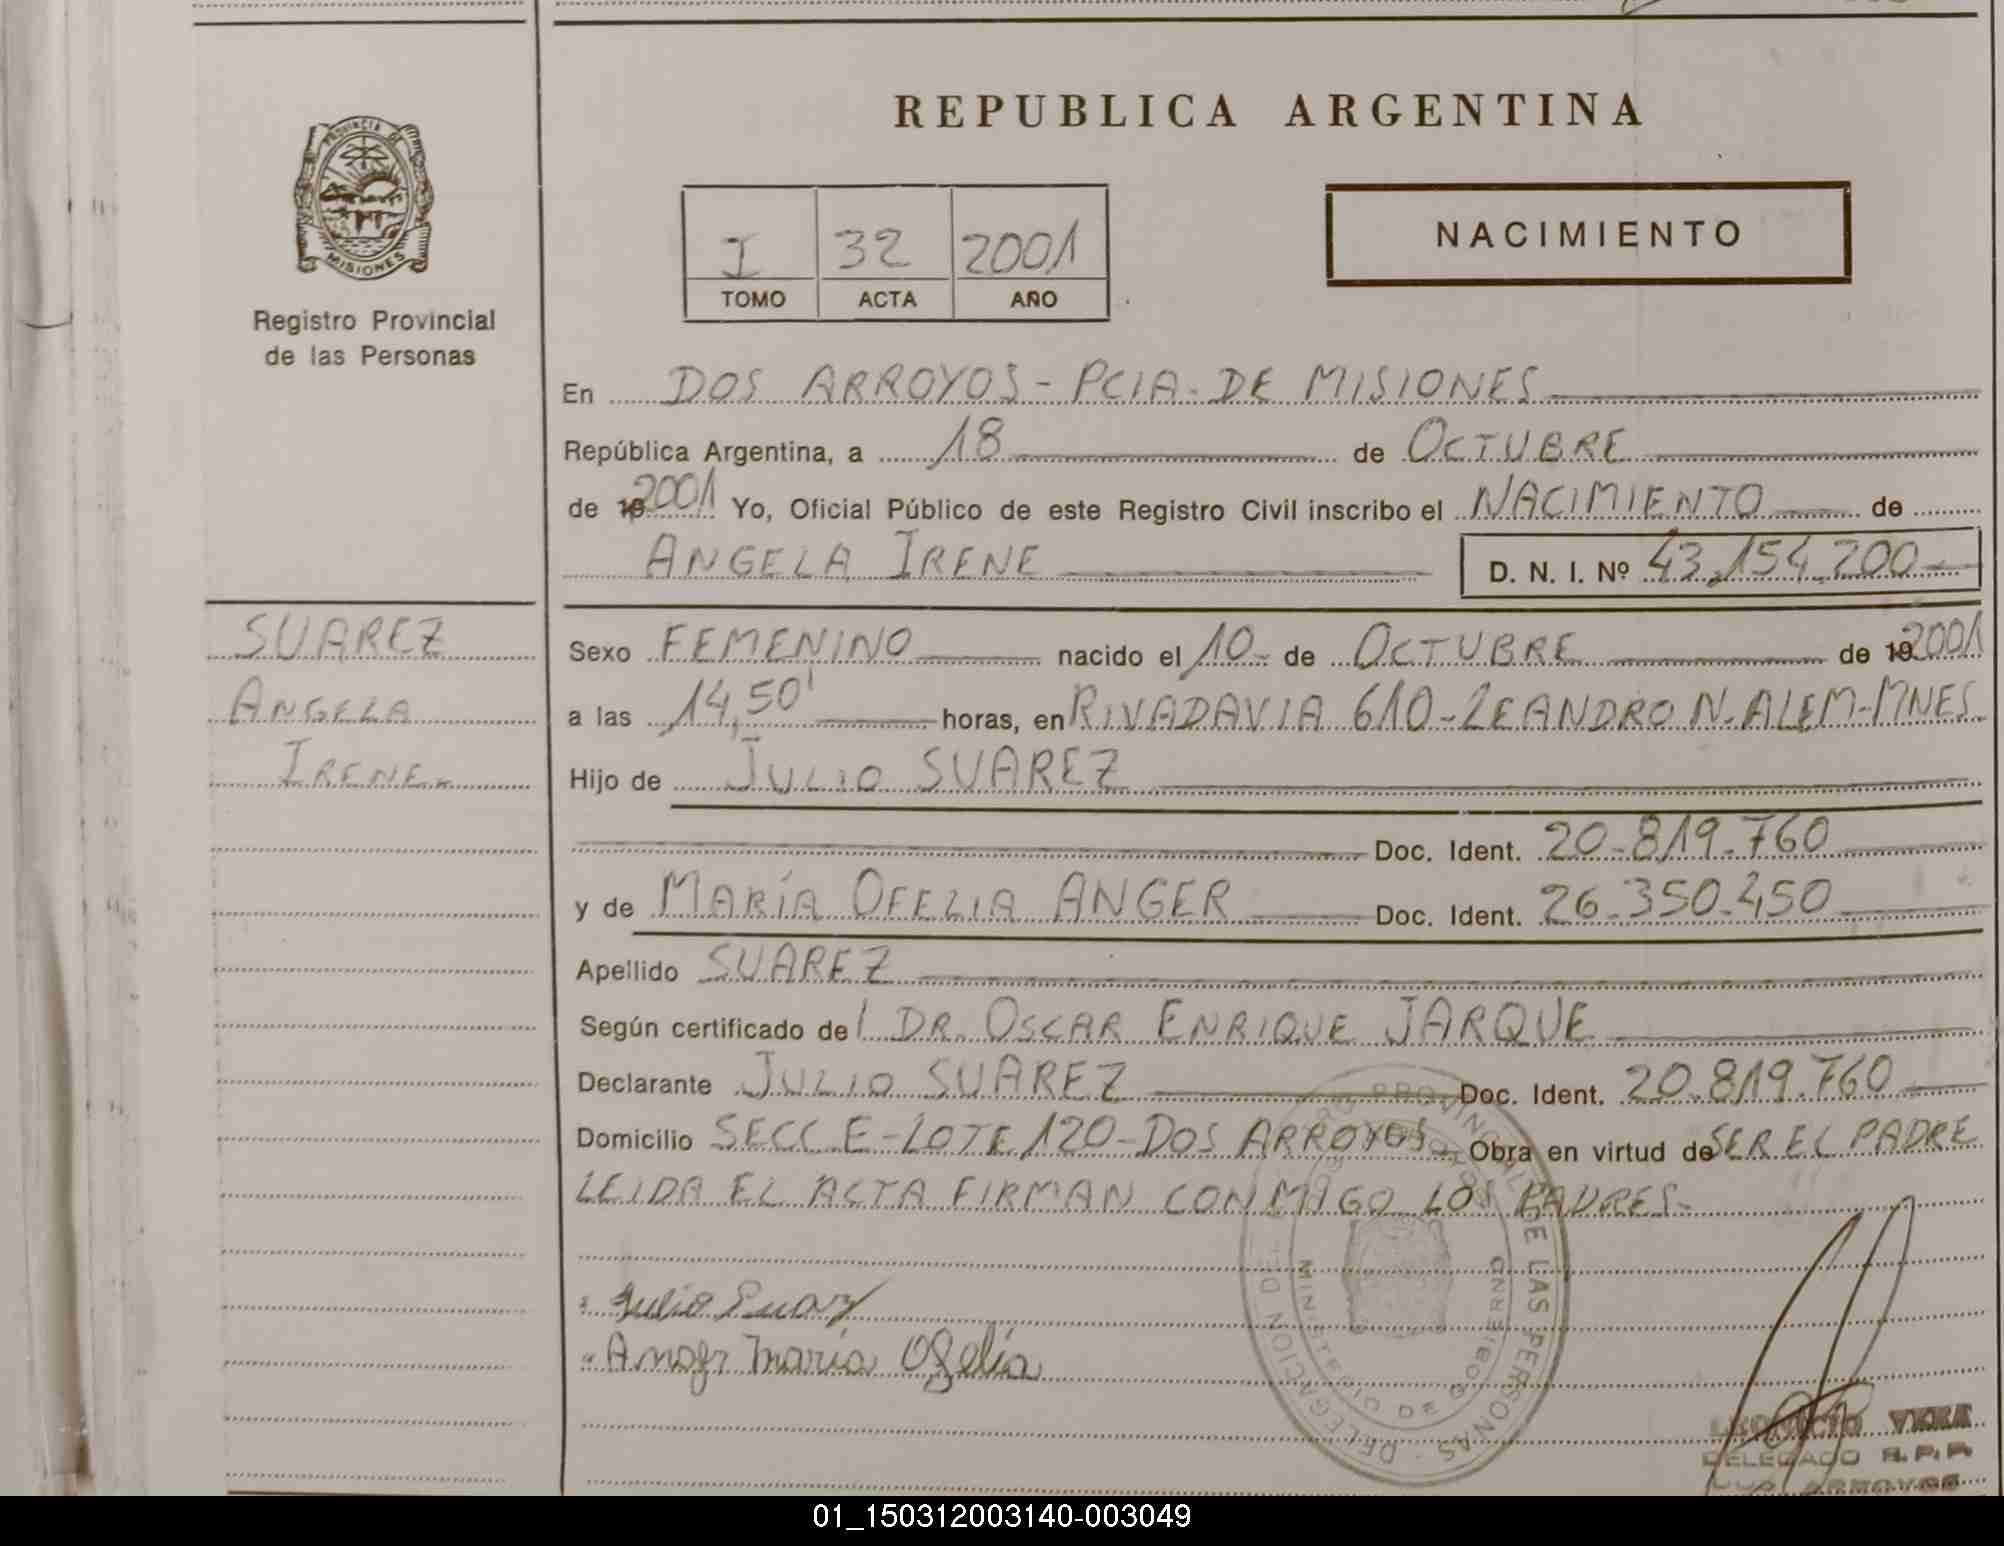 REPUBLICA ARGENTINA
PROVINCIA DE
MISIONES
Registro Provincial
de las Personas
I 32 2001
TOMO ACTA AÑO
NACIMIENTO
En DOS ARROYOS - PCIA. DE MISIONES
República Argentina, a 18 de OCTUBRE
de 19 2001 Yo, Oficial Público de este Registro Civil inscribo el NACIMIENTO de
ANGELA IRENE D. N. I. Nº 43.154.200
SUAREZ
ANGELA
IRENE.-
Sexo FEMENINO nacido el 10 - de OCTUBRE de 19 2001
a las 14,50' horas, en RIVADAVIA 610 - LEANDRO N. ALEM - MNES.
Hijo de JULIO SUAREZ
Doc. Ident. 20.819.760
y de MARÍA OFELIA ANGER Doc. Ident. 26.350.450
Apellido SUAREZ
Según certificado del DR. OSCAR ENRIQUE JARQUE
Declarante JULIO SUAREZ Doc. Ident. 20.819.760
Domicilio SECC. E - LOTE 120 - DOS ARROYOS. Obra en virtud de SER EL PADRE
LEIDA EL ACTA FIRMAN CONMIGO LOS PADRES.-
PROVINCIAL DE LAS PERSONAS - DELEGACION DE
MINISTERIO DE GOBIERNO
Julio Suarez
Anger María Ofelia
VERA
DELEGADO R.P.P.
DOS ARROYOS
01_150312003140-003049